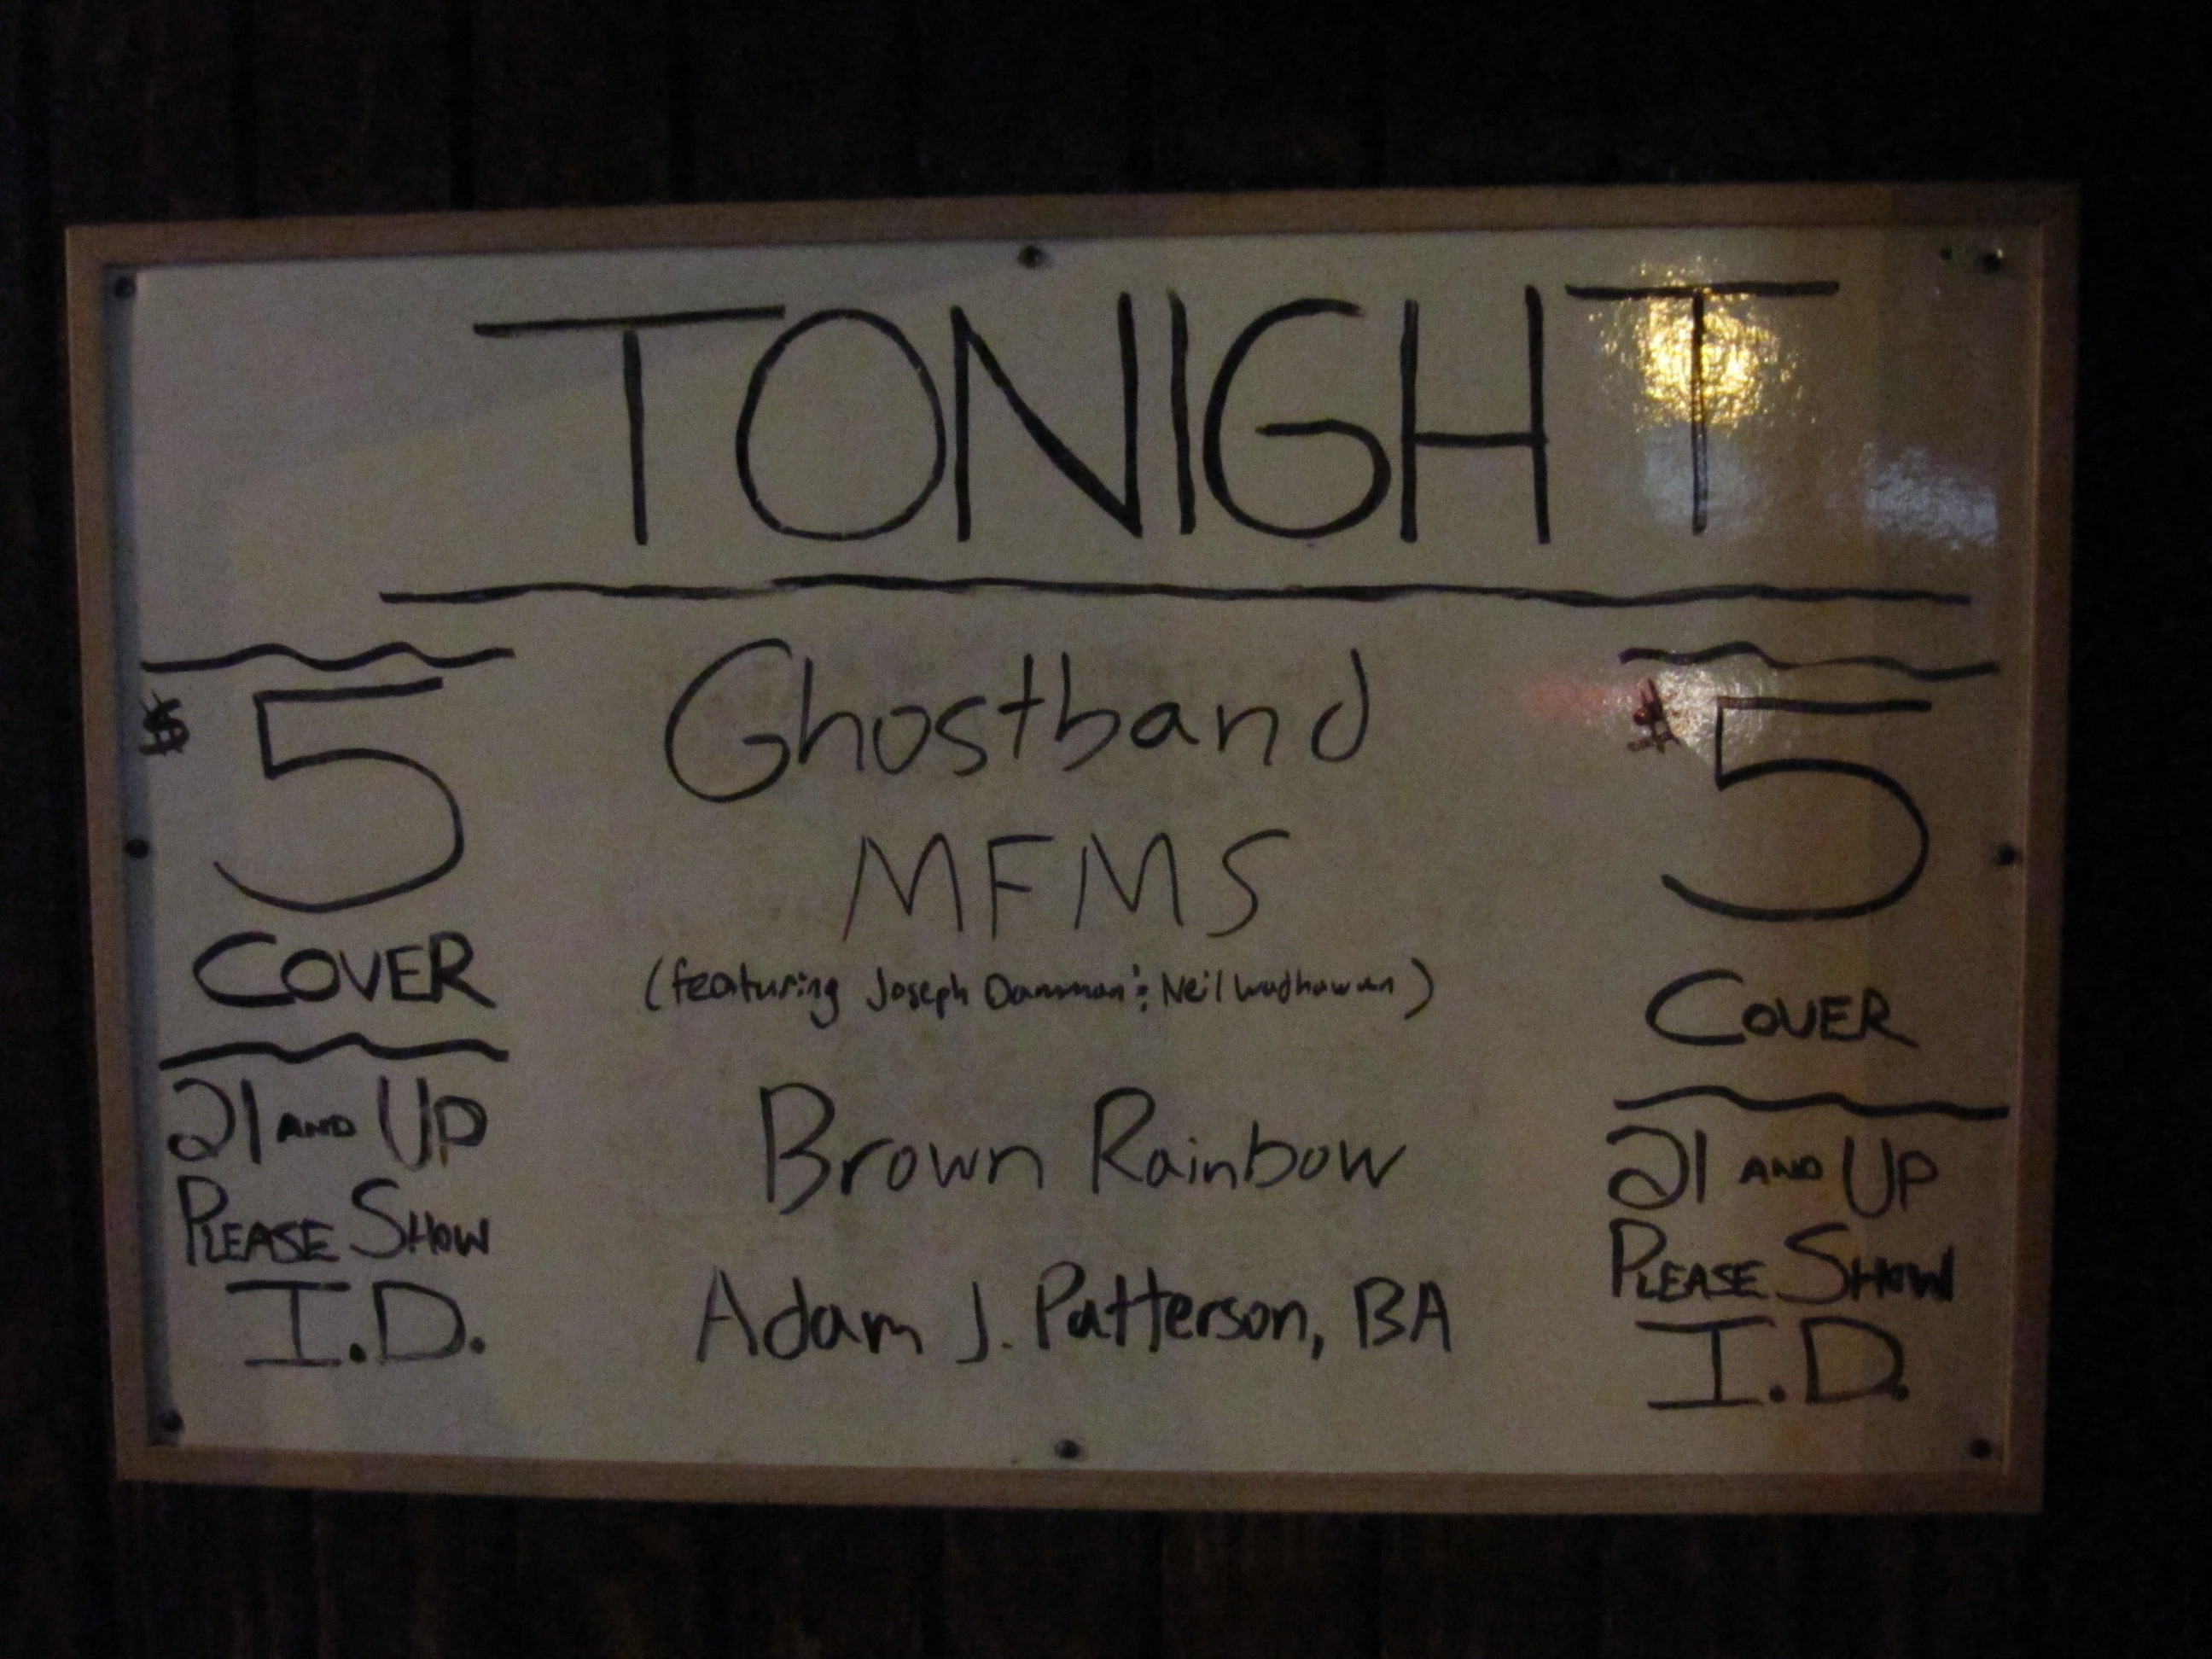 TONIGHT
$5
COVER
21 AND UP
PLEASE SHOW
I.D.
Ghostband
MFMS
(featuring Joseph Damman & Neil Wadhawan)
Brown Rainbow
Adam J. Patterson, BA
$5
COVER
21 AND UP
PLEASE SHOW
I.D.